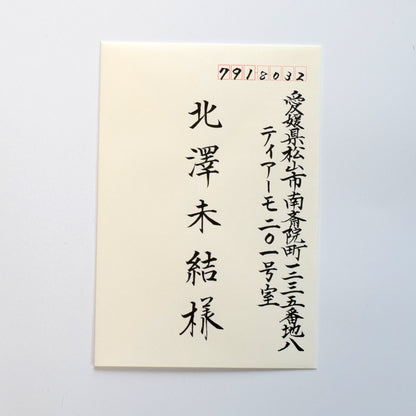 7918032
愛媛県松山市南斎院町一二三五番地八
ティアーモ二〇一号室
北澤未結様